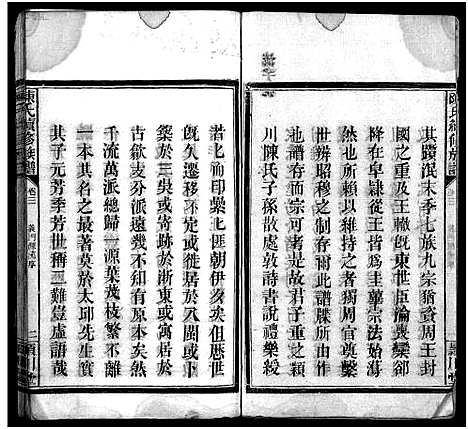 其殷泯末季七族九宗猶資周王封
國之重及王轍既東世臣淪喪欒郤
降在皁隸從王皆為圭蓽宗法始蕩
然也所賴以維持之者獨周官奠繫
世辨昭穆之制存爾此譜牒所由作
譜存而宗可考是故君子重宗
川陳氏子孫散處敦詩書說禮樂綬
若北而印纍北匪朝伊夕矣但歷世
既久遷移不常或徙居於八閩或卜
築於三吳或寄跡於浙東或寓居於
古歙支分派遠幾不知有原本矣然
千流萬派總歸一源葉茂枝繁不離
一本其名之最著莫於太邱先生實
其子元芳季芳世稱二難豈虛語哉
陳氏續修族譜
卷三
二
潁川堂